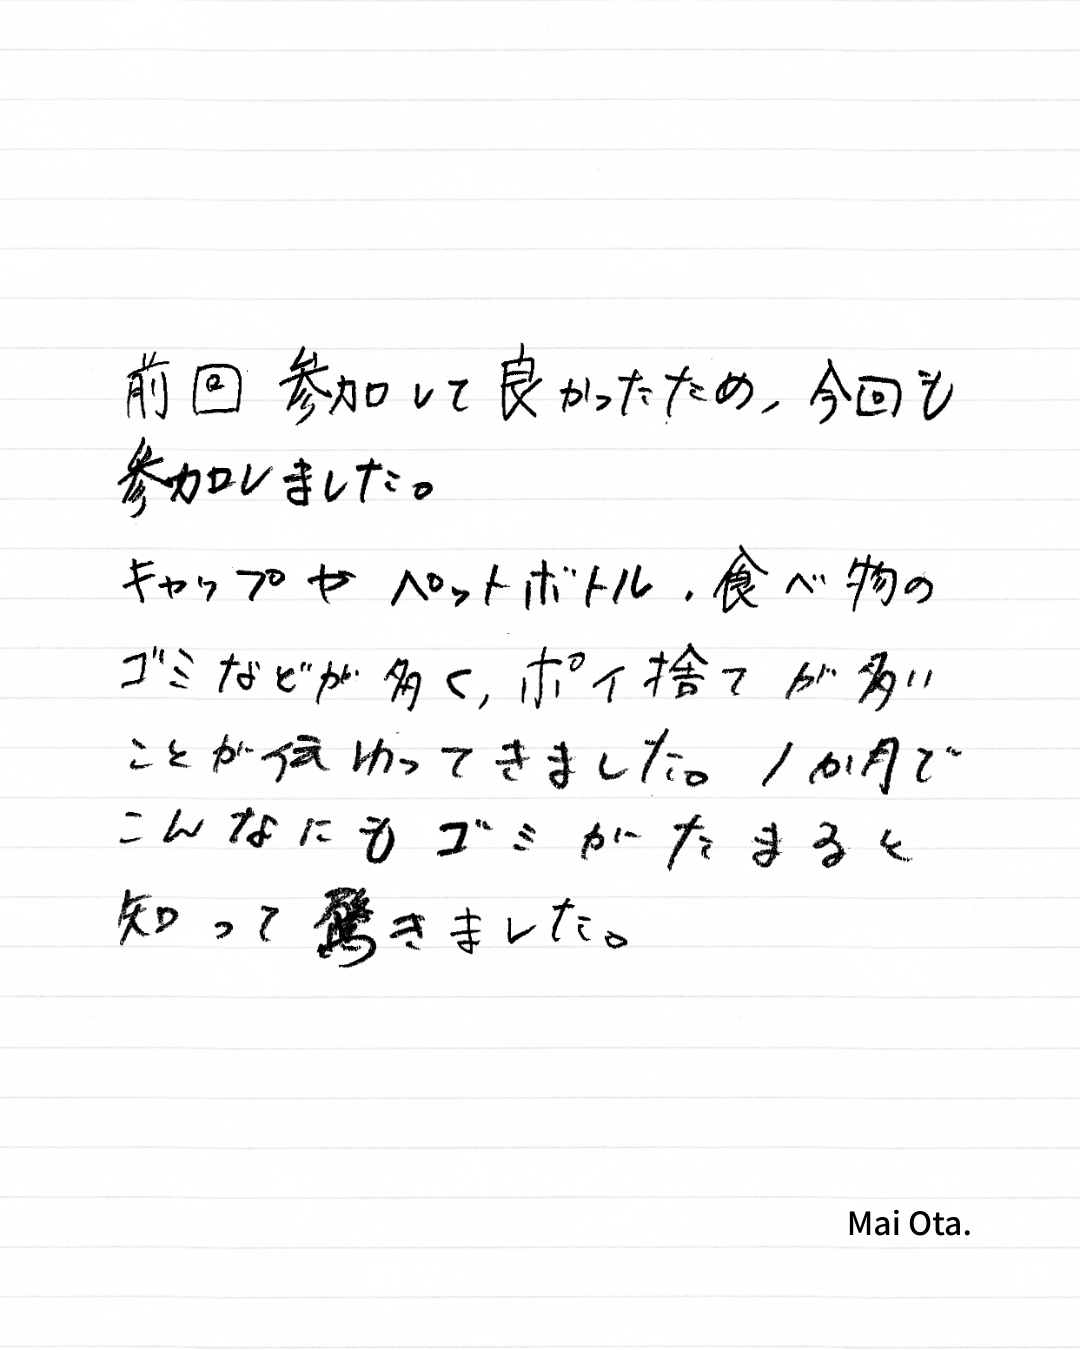 前回参加して良かったため、今回も
参加しました。
キャップやペットボトル、食べ物の
ゴミなどが多く、ポイ捨てが多い
ことが伝わってきました。1か月で
こんなにもゴミがたまると
知って驚きました。
Mai Ota.